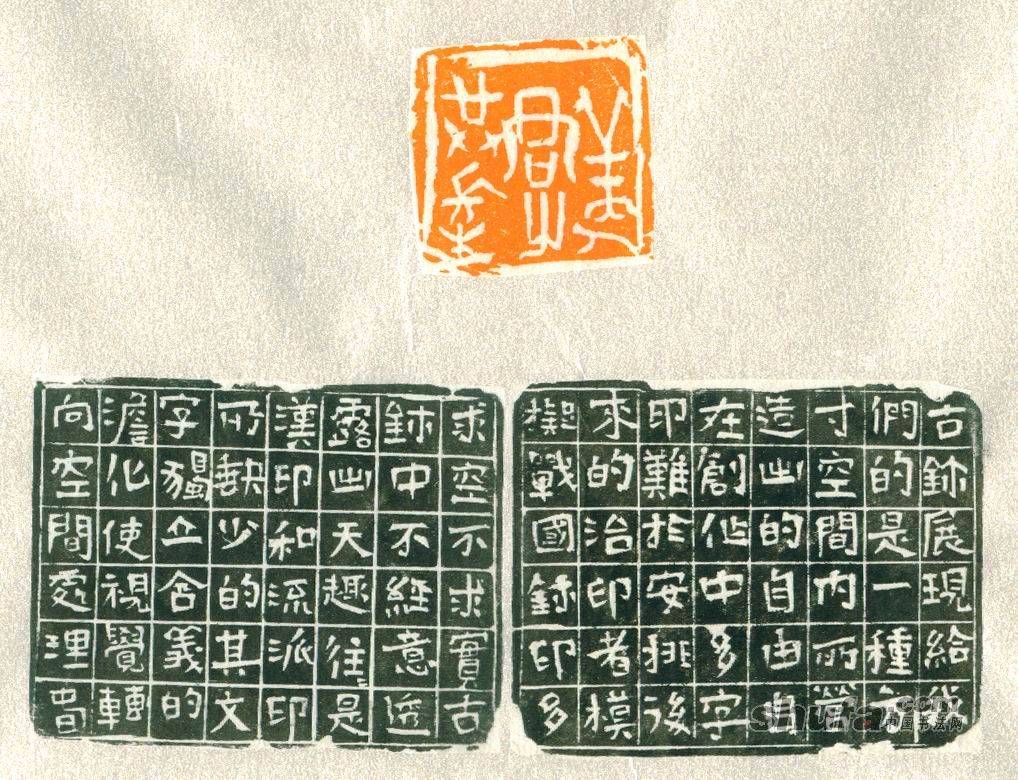 古鉨展現給
們的是一種
寸空間内所營
造出的自由自
在創作中多字
印難於安排後
來的治印者模
擬戰國鉨印多
求空不求實古
鉨中不經意透
露出天趣往是
漢印和流派印
所缺少的其文
字獨立含義的
澹化使視覺轉
向空間處理
中国书法网